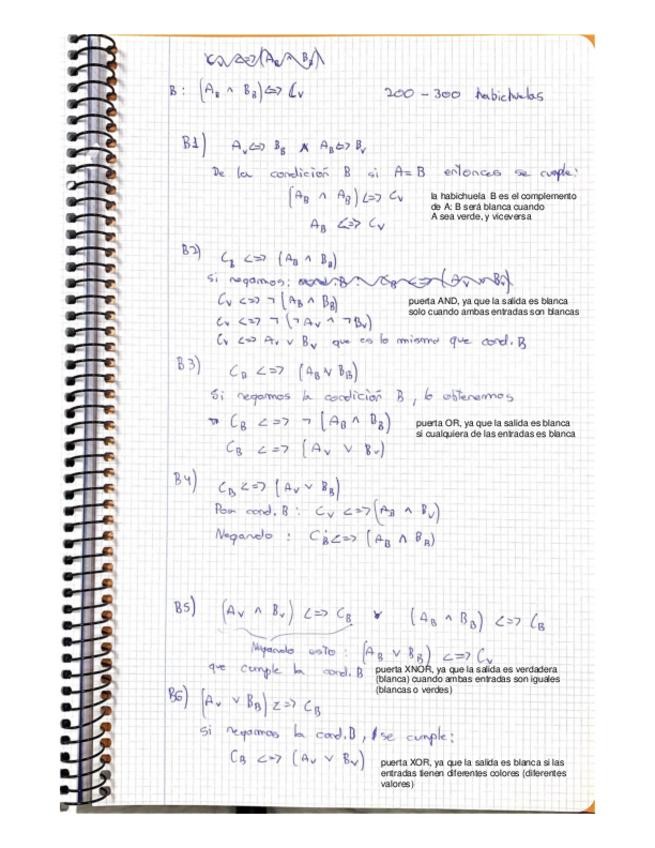 B: (A_B ∧ B_B) <=> C_V 200 - 300 habichuelas
B1) A_V <=> B_B ∧ A_B <=> B_V
De la condición B si A = B entonces se cumple:
(A_B ∧ A_B) <=> C_V
A_B <=> C_V
la habichuela B es el complemento
de A: B será blanca cuando
A sea verde, y viceversa
B2) C_B <=> (A_B ∧ B_B)
Si negamos:
C_V <=> ¬(A_B ∧ B_B)
C_V <=> ¬(¬A_V ∧ ¬B_V)
C_V <=> A_V ∨ B_V que es lo mismo que cond. B
puerta AND, ya que la salida es blanca
solo cuando ambas entradas son blancas
B3) C_B <=> (A_B ∨ B_B)
Si negamos la condición B, lo obtenemos
C_B <=> ¬(A_B ∧ B_B)
C_B <=> (A_V ∨ B_V)
puerta OR, ya que la salida es blanca
si cualquiera de las entradas es blanca
B4) C_B <=> (A_V ∨ B_B)
Por cond. B: C_V <=> (A_B ∧ B_V)
Negando: C_B <=> (A_B ∧ B_B)
B5) (A_V ∧ B_V) <=> C_B (A_B ∧ B_B) <=> C_B
Negando esto: (A_B ∨ B_B) <=> C_V
que cumple la cond. B
puerta XNOR, ya que la salida es verdadera
(blanca) cuando ambas entradas son iguales
(blancas o verdes)
B6) (A_V ∨ B_B) <=> C_B
Si negamos la cond. B, se cumple:
C_B <=> (A_V ∨ B_V)
puerta XOR, ya que la salida es blanca si las
entradas tienen diferentes colores (diferentes
valores)